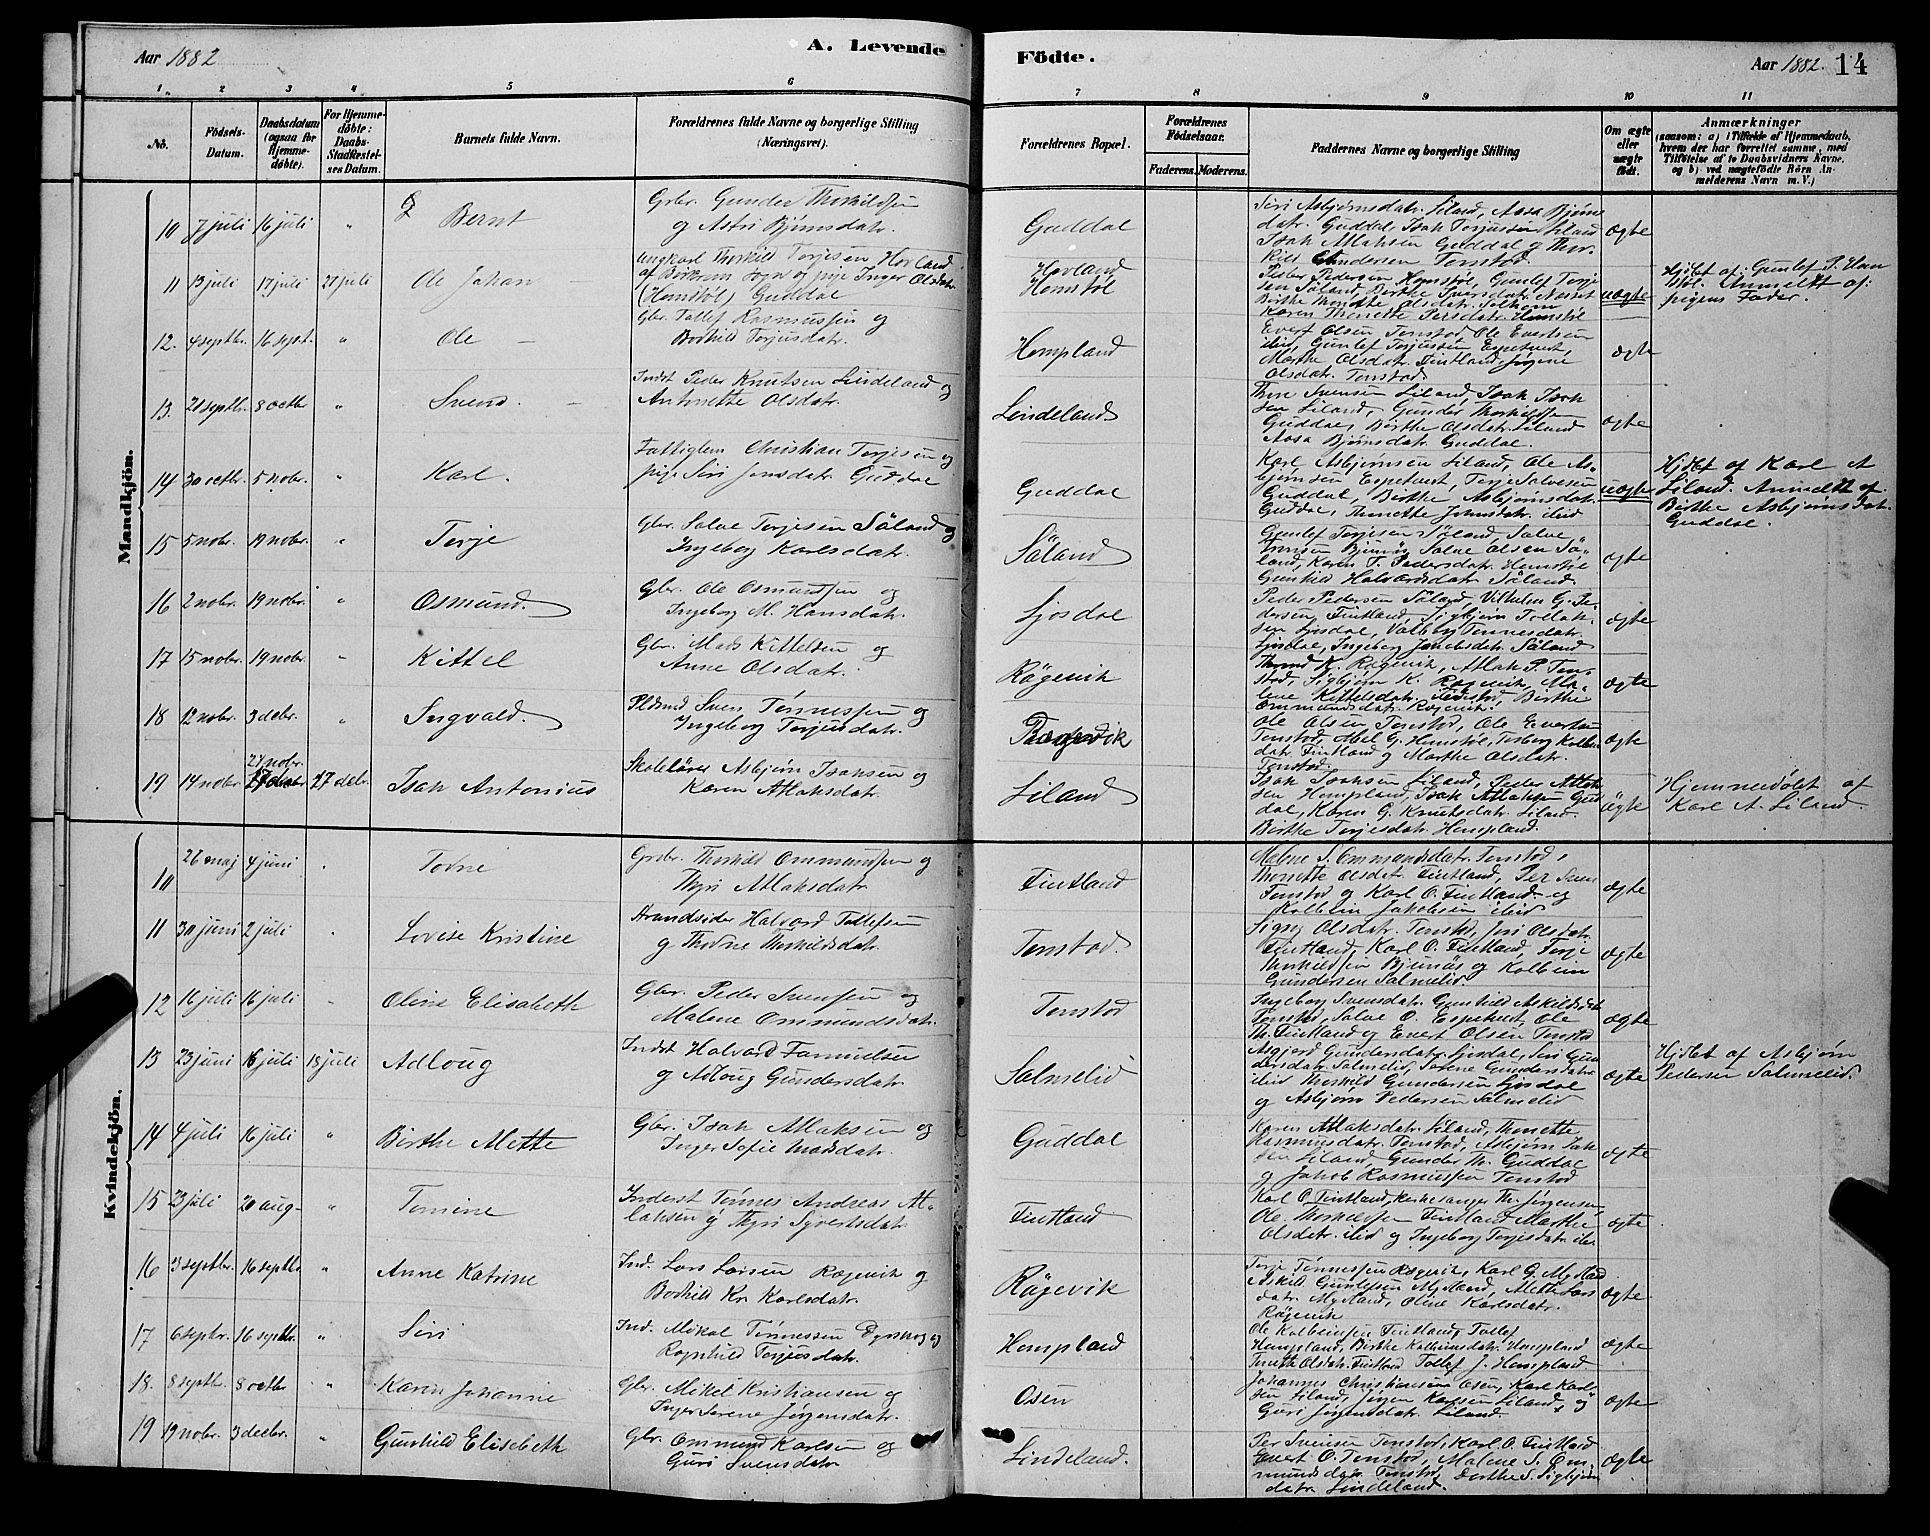 Aar 1882
A. Levende
Födte.
Aar 1882.
14
1 2 3 4 5 6 7 8 9 10 11
No.
Födsels-Datum.
Daabsdatum (ogsaa for Hjemmedöbte).
For Hjemmedöbte: Daabs-Stadfæstelses Datum.
Barnets fulde Navn.
Forældrenes fulde Navne og borgerlige Stilling (Næringsvei).
Forældrenes Bopæl.
Forældrenes Födselsaar.
Faderens.
Moderens.
Faddernes Navne og borgerlige Stilling
Om ægte eller uægte födt.
Anmærkninger
(saasom: a) i Tilfælde af Hjemmedaab, hvem der har forrettet samme, med Tilföielse af to Daabsvidners Navne, og b) ved uægtefödte Börn Anmelderens Navn m. V.)
Mandkjön.
10 7 juli 16 juli " Bernt
Grbr. Gunder Thorkildsen
og Astri Bjørnsdatr.
Guddal
Siri Asbjørnsdatr. Liland, Aasa Bjørns
datr. Guddal, Isak Torjussen Liland
Isak Atlaksen Guddal og Thor
kild Gundersen Tonstod
ægte
11 13 juli 17 juli 27 juli Ole Johan
ungkarl Thorkild Torjesen Hovland
af Birkrem Sogn og pige Inger Olsdatr.
(Homstøl) Guddal
Hovland
Homstøl
Peder Pedersen Homstøl, Gunlef Torje
sen Söland, Birthe
Birthe Thonette Olsdatr.
Karen Thonette Persdatr. Homstøl
uægte
Hjdbt af: Gunlef P. Hom
støl. Anmeldt af:
pigens Fader.
12. 4 septbr. 16 sept. " Ole
Gbr. Tollef Rasmussen og
Borhild Torjusdatr.
Hompland
Evert Olsen Tonstod, Ole Evertsen
ibid, Gunlef Torjussen Espetvedt,
Marthe Olsdatr. Fintland, Jørgine
Olsdatr. Tonstod
ægte
13. 21 septbr. 8 octbr " Svend.
Indst Peder Knutsen Lindeland og
Antonette Olsdatr.
Lindeland
Thore Svensen Liland, Isak Isak
sen Liland, Gunder Thorkildsen
Guddal, Birthe Olsdatr. Liland
Aasa Bjørnsdatr. Guddal.
ægte
14 30 octbr. 5 nobr. " Karl.
Fattiglem Christian Torjesen og
pige Siri Jonsdatr. Guddal
Guddal
Karl Asbjørnsen Liland, Ole As
bjørnsen Espetvedt, Torje Salvesen
Guddal, Birthe Asbjørnsdatr.
Guddal, Thonette Johnsdatr. ibid
uægte
Hjdbt af Karl A
Liland. Anmeldt af
Birthe Asbjørnsdatr.
Guddal.
15 5 nobr. 19 nobr. " Terje
Gbr. Salve Torjesen Söland og
Ingeborg Karlsdatr.
Söland
Gunlef Torjesen Söland, Salve
Tonnsen Bjunäs, Salve Olsen Sö
land, Karen T. Pedersdatr. Homstøl
Gunhild Halvardsdatr. Söland.
ægte
16 2 nobr. 19 nobr. " Osmund.
Gbr. Ole Osmundsen og
Ingeborg M. Hansdatr.
Ljosdal
Peder Pedersen Söland, Vilhelm G. Pe
dersen Fintland, Sigbjørn Tollak
sen Ljosdal, Valborg Tønnesdatr.
Ljosdal, Ingeborg Jakobsdatr. Söland
ægte
17 15 nobr. 19 nobr. " Kittel
Gbr. Mads Kittelsen og
Anne Olsdatr.
Rägevik
K. Rägevik, Atlak P. Ton
stod, Sigbjørn K. Rägevik, Ma
lene Kittelsdatr. Tonstod, Birthe
Ommundsdatr. Rägevik.
ægte
18 12 nobr. 3 debr. " Ingvald.
Sven Tønnessen og
Ingeborg Torjusdatr.
Ole Olsen Tonstod, Ole Evertsen
Tonstod, Abel G. Homstøl, Kolben
datr. Fintland og Marthe Olsdatr.
Tonstod.
ægte
19 14 nobr. 27 nobr. 27 debr. Isak Antonius
Skolelärer Asbjørn Isaksen og
Karen Atlaksdatr.
Liland
Isak Isaksen Liland, Peder Atlak
sen Hompland, Isak Atlaksen Gud
dal, Karen G. Knutsdatr. Liland
Birthe Torjesdatr. Hompland.
ægte
Hjemmedöbt af
Karl A. Liland.
Kvindekjön.
10 26 maj 4 juni " Tovne
Grbr. Thorkild Ommundsen og
Thyri Atlaksdatr.
Fintland
Malene S. Ommundsdatr. Tonstod,
Thonette Olsdatr. Fintland, Per Sven
Tonstod og Karl O. Fintland og
Kolbein Jakobsen ibid
ægte
11 30 juni 2 juli " Lovise Kristine
Strandsider Halvard Tollefsen
og Thovne Thorkildsdatr.
Tonstod.
Sigrj Olsdatr. Tonstod, Siri Olsdatr.
Fintland, Karl O. Fintland, Torje
Thorkildsen Bjunäs og Kolbein
Gundersen Salmelid
ægte
12 16 juli 16 juli " Oline Elisabeth
Gbr. Peder Svensen og
Malene Ommundsdatr.
Tonstod
Ingeborg Svensdatr. Gunhild Askildsdatr
Tonstod, Salve O. Espetvedt, Ole
Th. Fintland og Evert Olsen Tonstod
ægte
13 23 juni 16 juli 18 juli Adloug
Indst Halvard Samuelsen
og Adloug Gundersdatr.
Salmelid
Asgjerd Gundersdatr. Ljosdal, Siri Gun
dersdatr. Salmelid, Serene Gundersdatr.
ibid Thorkild Gundersen Ljosdal
og Asbjørn Pedersen Salmelid
ægte
Hjdbt af Asbjørn
Pedersen Salmelid.
14 4 juli 16 juli " Birthe Mette
Gbr. Isak Atlaksen og
Inger Sofie Madsdatr.
Guddal
Karen Atlaksdatr. Liland, Thonette
Rasmusdatr. Tonstod, Asbjørn Isak
sen Liland, Gunder Th. Guddal
og Jakob Rasmussen Tonstod
ægte
15 23 juli 20 aug " Tomine
Inderst Tønnes Andreas At
laksen og Thyri Syvertsdatr
Fintland
Karl O. Fintland, Kirkesanger Th. Jørgensen,
Ole Thorkildsen Fintland Marthe
Olsdatr. ibid og Ingeborg Torjesdatr. ibid
ægte
16 3 septbr. 16 septbr. " Anne Katrine
Ind. Lars Larsen Rägevik og
Borhild Kr. Karlsdatr.
Rägevik
Torje Tønnessen Rägevik, Karl G. Mydland
Askild Gunlefsen Mydland, Mette Lars
datr. Mydland, Oline Karlsdatr.
Rägevik
ægte
17 6 septbr. 16 septbr. " Siri
Ind. Mikal Tønnessen Dyrskog og
Ragnhild Torjusdatr.
Hompland
Ole Kolbeinsen Fintland, Tollef
Hompland, Birthe Kolbeinsdatr. Hompland
Tonette Olsdatr. Fintland Tollef J. Hompland
ægte
18. 8 septbr. 8 octbr " Karen Johanne
Gbr. Mikel Kristiansen og
Inger Serene Jørgensdatr.
Osen
Johannes Christiansen Osen, Karl Karl
sen Liland, Jørgen Karlsen Liland, og
Guri Jørgensdatr. Liland.
ægte
19 19 nobr. 3 decbr. " Gunhild Elisebeth
Gbr. Ommund Karlsen og
Guri Svensdatr
Lindeland.
Per Svensen Tonstod, Karl O. Fintland
Evert O. Tonstod, Malene S. Om
mundsdatr. Tonstod, Dorthe S. Sigbjørn
datr. Lindeland.
ægte